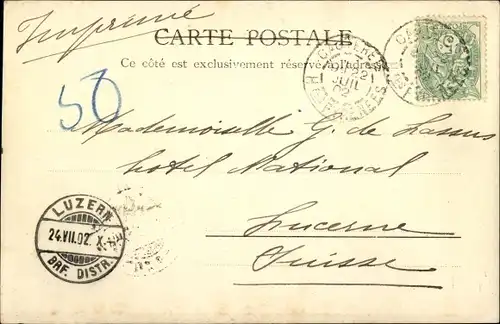 Imprimé
CARTE POSTALE
Ce côté est exclusivement réservé à l'adresse
50
CAUTERETS
22
JUIL
02
HTES PYRÉNÉES
5
Mademoiselle G. de Lassus
hotel National
Lucerne
Suisse
LUZERN
24.VII.02. X
BRF. DISTR.